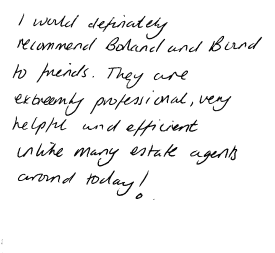 I would definately
recommend Boland and Burnd
to friends. They are
extreemly professional, very
helpful and efficient
unlike many estate agents
around today!